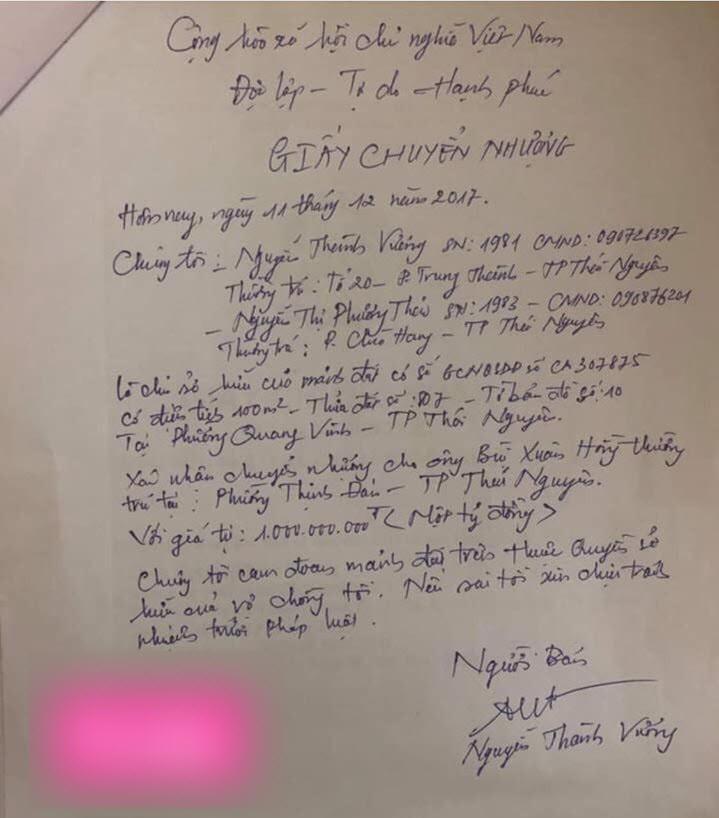 Cộng hòa xã hội chủ nghĩa Việt Nam
Độc lập - Tự do - Hạnh phúc
GIẤY CHUYỂN NHƯỢNG
Hôm nay, ngày 11 tháng 12 năm 2017.
Chúng tôi: - Nguyễn Thành Vương SN: 1981 CMND: 090726397
Thường trú: Tổ 20 - P. Trung Thành - TP Thái Nguyên
- Nguyễn Thị Phương Thảo SN: 1983 - CMND: 090876201
Thường trú: P. Chùa Hang - TP Thái Nguyên
là chủ sở hữu của mảnh đất có số GCNQSDĐ số CA307875
có diện tích 100m² - Thửa đất số: 807 - Tờ bản đồ số: 10
Tại Phường Quang Vinh - TP Thái Nguyên.
Xác nhận chuyển nhượng cho ông Bùi Xuân Hồng thường
trú tại: Phường Thịnh Đán - TP Thái Nguyên.
Với giá trị: 1.000.000.000đ <Một tỷ đồng>
Chúng tôi cam đoan mảnh đất trên thuộc quyền sở
hữu của vợ chồng tôi. Nếu sai tôi xin chịu trách
nhiệm trước pháp luật.
Người Bán
Nguyễn Thành Vương